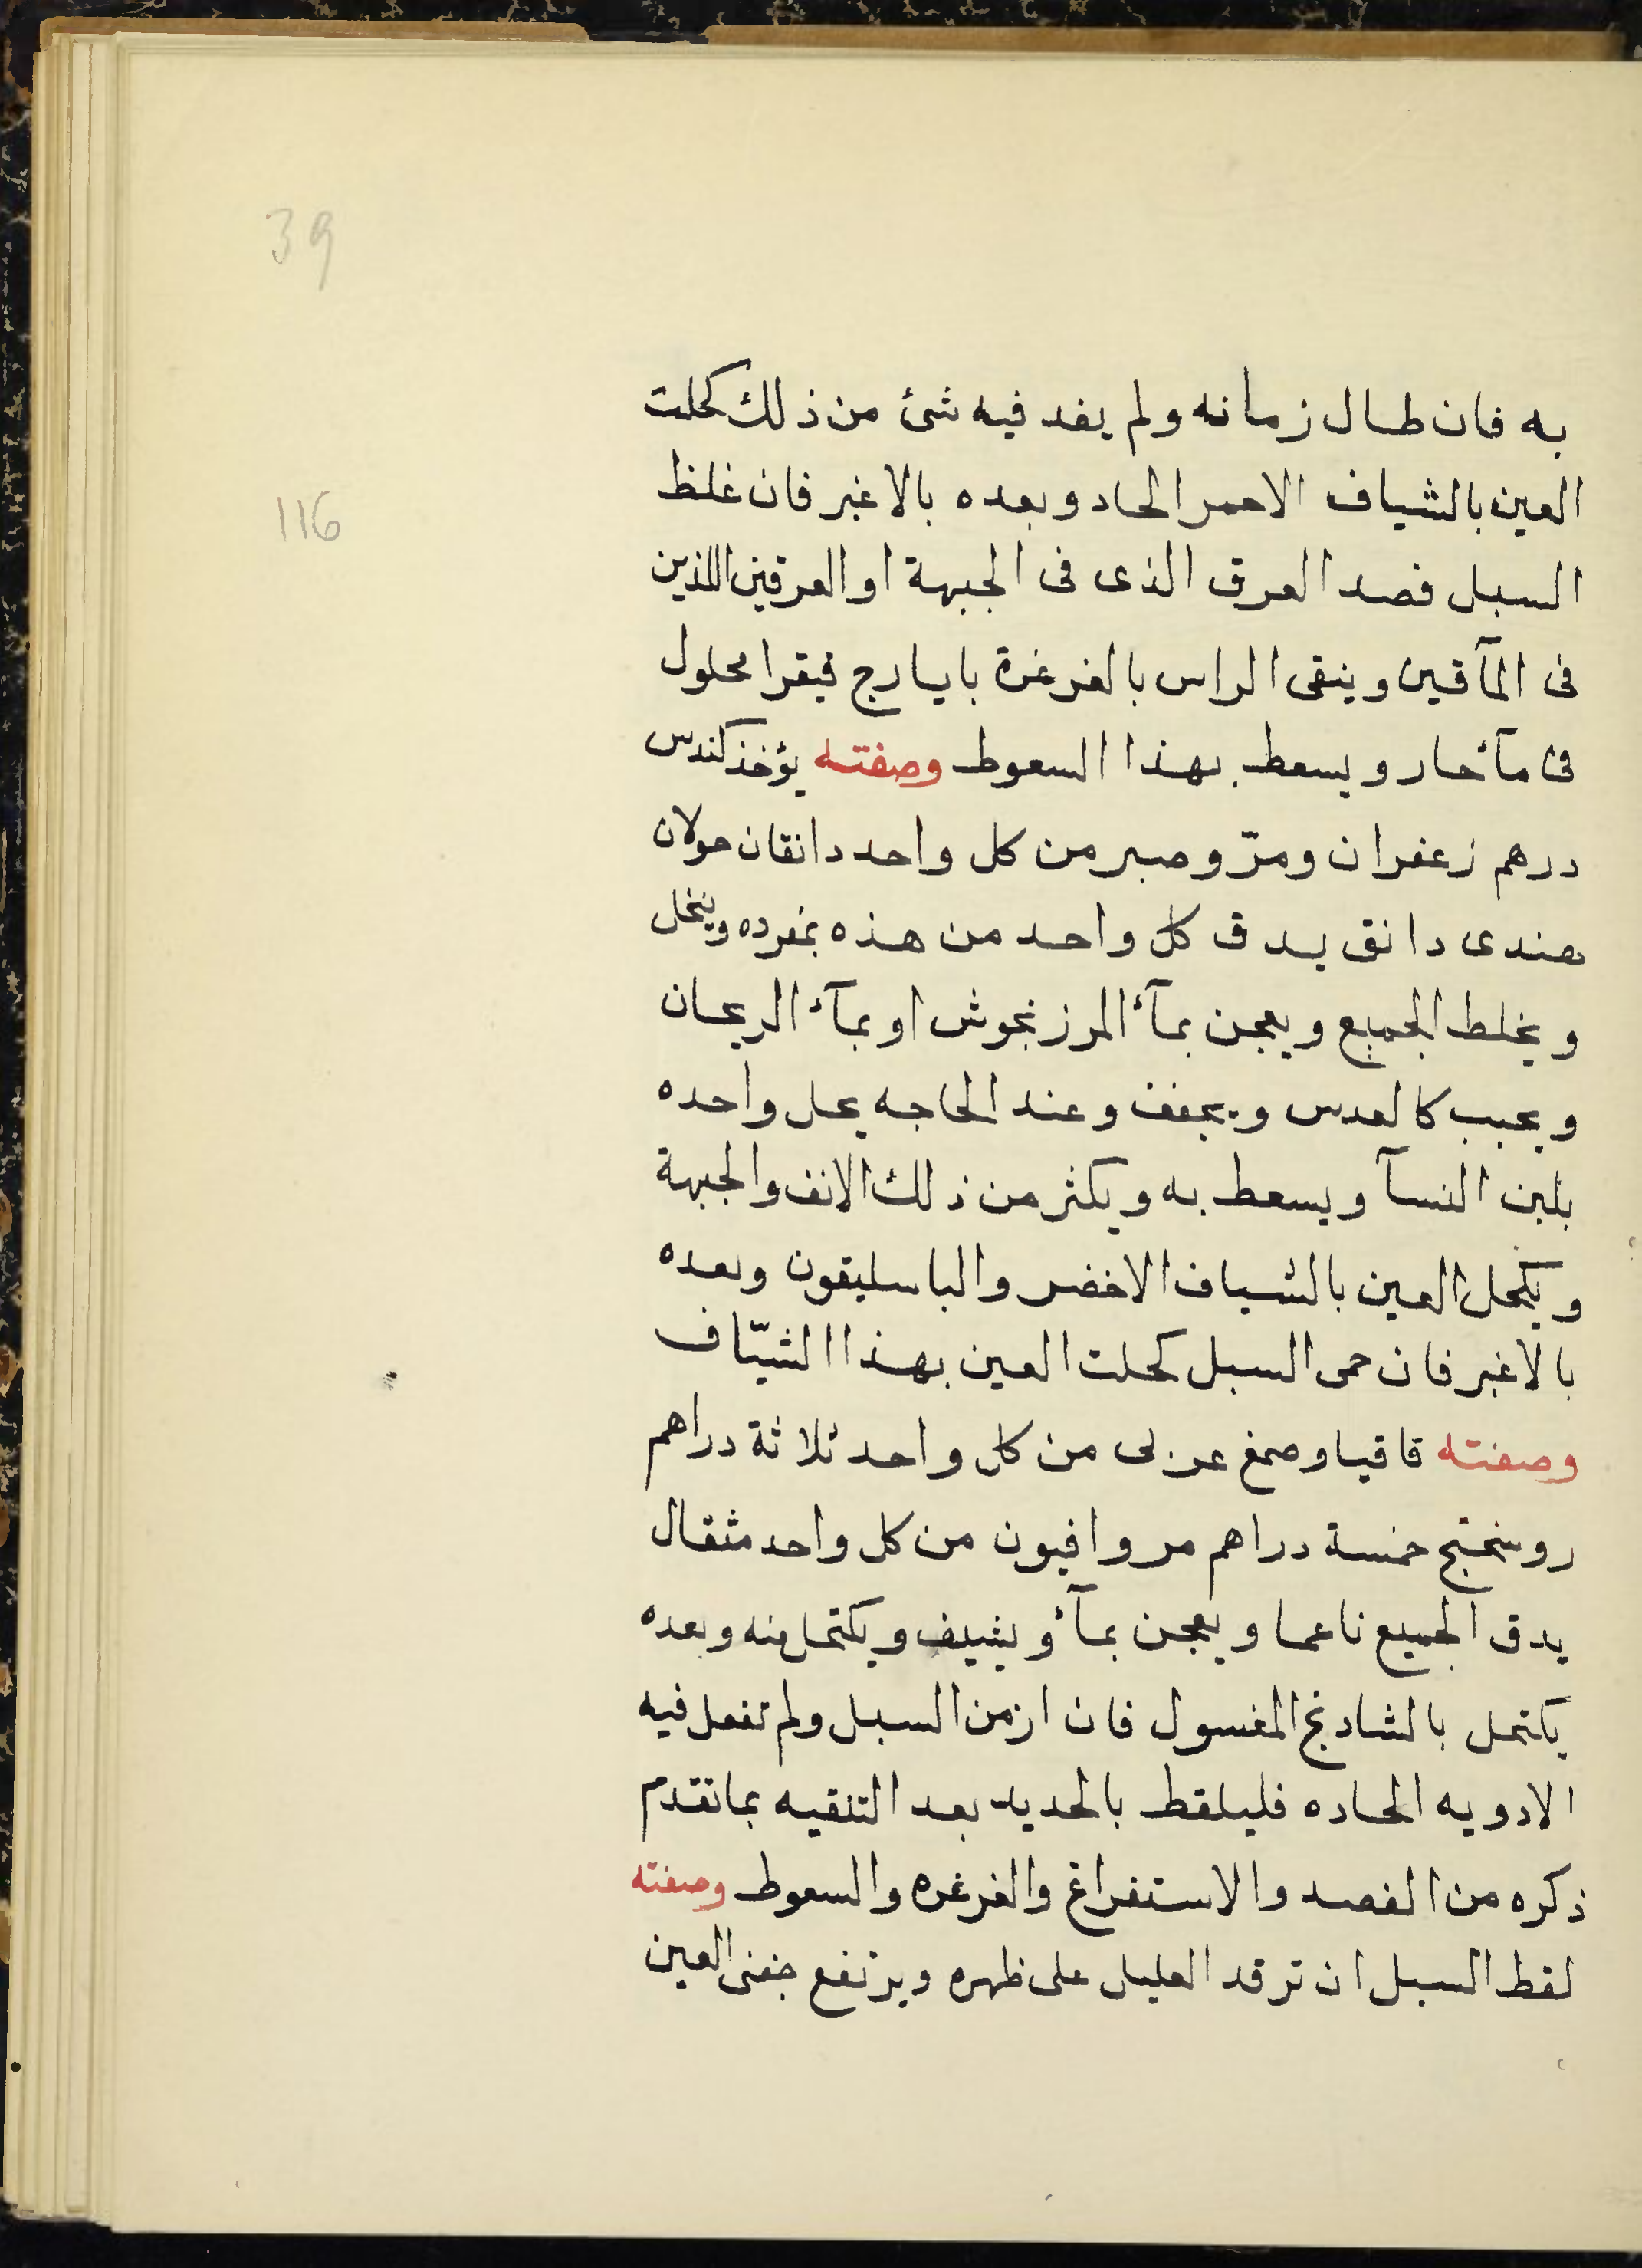 39
به فان طال زمانه ولم يفد فيه شئ من ذلك كحلت
116
العين بالشياف الاحمر الحاد وبعده بالاغبر فان غلظ
السبل فصد العرق الذى فى الجبهة او العرقين اللذين
فى المآقين وينقى الراس بالغرغرة بايارج فيقرا محلول
فى مآء حار ويسعط بهذا السعوط وصفته يؤخذ كندس
درهم زعفران ومرّ وصبر من كل واحد دانقان حولان
هندى دانق يدق كل واحد من هذه بمفرده وينخل
ويخلط الجميع ويعجن بمآء المرزنجوش او بمآء الريحان
ويحبب كالعدس ويجفف وعند الحاجه يحل واحده
بلبن النسآ ويسعط به ويكثر من ذلك الانف والجبهة
ويكحل العين بالشياف الاخضر والباسليقون وبعده
بالاغبر فان حمى السبل كحلت العين بهذا الشيّاف
وصفته قاقيا وصمغ عربى من كل واحد ثلاثة دراهم
روسختج خمسة دراهم مر وافيون من كل واحد مثقال
يدق الجميع ناعما ويعجن بمآء ويشيف ويكتحل منه وبعده
يكتحل بالشادنج المغسول فان ازمن السبل ولم تفعل فيه
الادويه الحاده فليلقط بالحديد بعد التنقيه بما تقدم
ذكره من الفصد والاستفراغ والغرغره والسعوط وصفته
لقط السبل ان ترقد العليل على ظهره ويرتفع جفنى العين